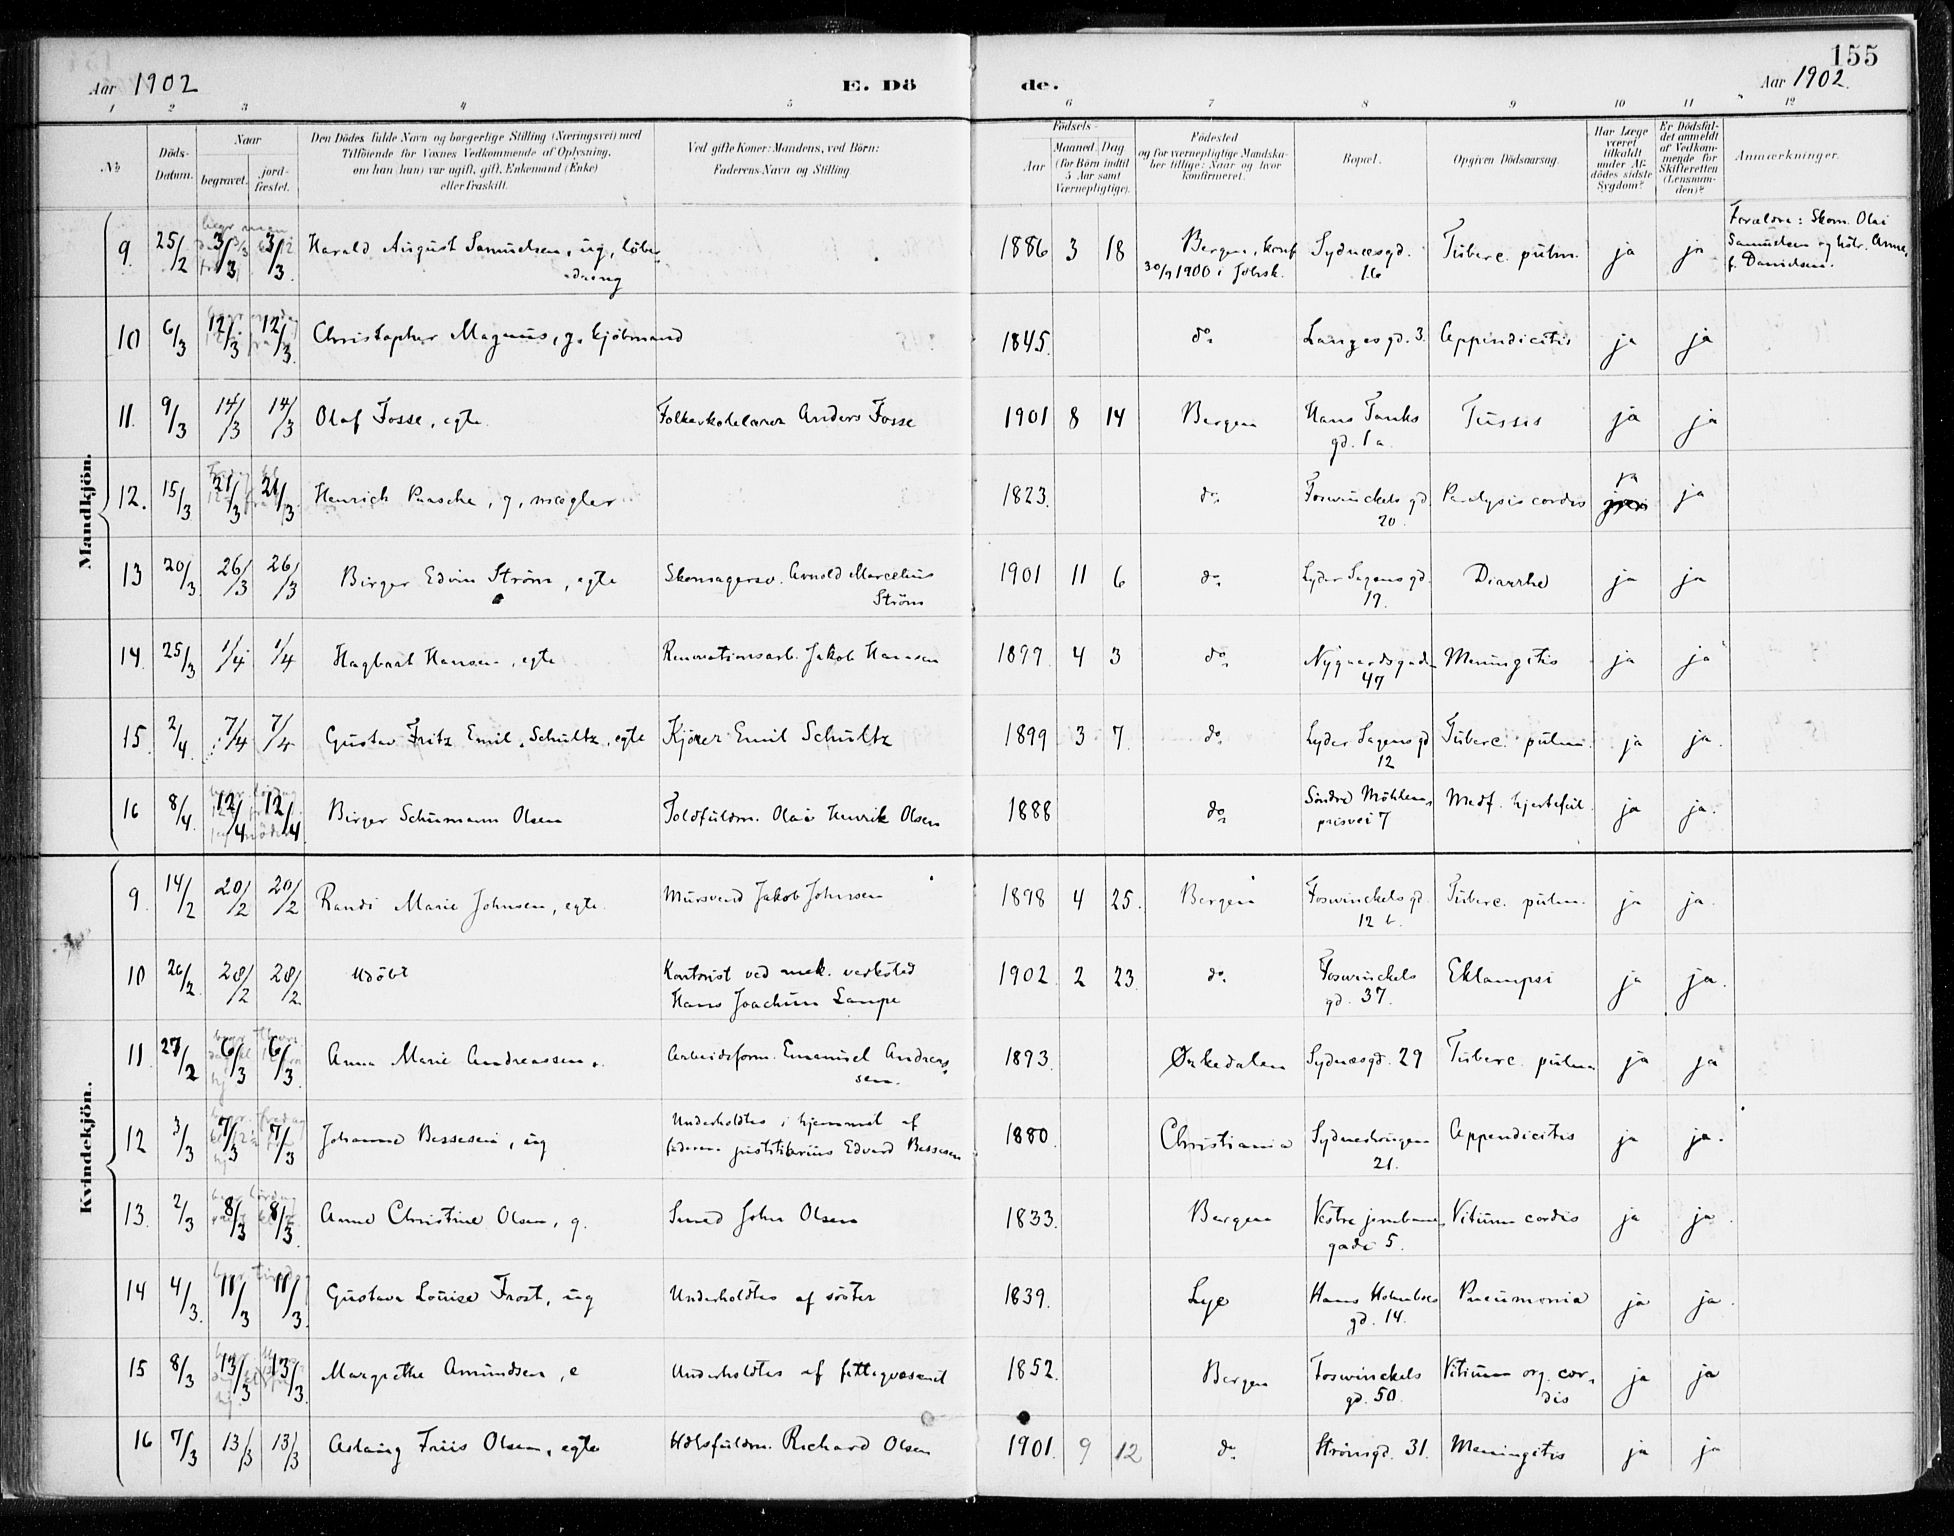 155
Aar 1902 E. Dö de. Aar 1902.
1 2 3 4 5 6 7 8 9 10 11 12
No. Döds-Datum. Naar begravet. jord-fæstet. Den Dödes fulde Navn og borgerlige Stilling (Næringsvei) med Tilföiende for Voxnes Vedkommende af Oplysning, om han (hun) var ugift, gift, Enkemand (Enke) eller fraskilt. Ved gifte Koner: Mandens, ved Börn: Faderens Navn og Stilling. Födsels- Aar Maaned. Dag (for Börn indtil 5 Aar samt Værnepligtige). Födested og for værnepligtige Mandska-ber tillige: Naar og hvor konfirmeret. Bopæl. Opgiven Dödsaarsag. Har Læge været tilkaldt under Af-dödes sidste Sygdom? Er Dödsfal-det anmeldt af Vedkom-mende for Skifteretten (Lensman-den)? Anmærkninger.
Mandkjön.
9. 25/2 3/3 3/3. Harald August Samuelsen, ug, løbe-dreng 1886 3 18 Bergen, konf 30/9 1900 i Johsk. Sydnæsgd. 16 Tuberc. pulm. ja ja Forældre: Skom. Olai Samuelsen og hstr. Anne, f. Danielsen.
10 6/3 12/3 12/3. Christopher Magnus, g. kjöbmand 1845. do. Langes gd. 3. Appendicitis ja ja
11. 9/3 14/3 14/3 Olaf Fosse, egte. Folkeskolelærer Anders Fosse 1901 8 14 Bergen Hans Tanks gd. 1a. Tussis ja ja
12. 15/3 21/3 21/3. Henrich Paasche, g, mægler 1823. do Foswinckels gd. 20. Paralysis cordis ja ja
13 20/3 26/3 26/3 Birger Edvin Ström, egte Skomagersv. Arnold Marcelius Ström 1901 11 6 do. Lyder Sagens gd. 19. Diarrhe ja ja
14. 25/3 1/4 1/4 Hagbart Hansen, egte Renovationsarb. Jakob Hansen 1899. 4 3 do. Nygaardsgaden 47 Meningitis ja ja
15. 2/4. 7/4 7/4 Gustav Fritz Emil Schultz, egte Kjører Emil Schultz 1899 3 7. do. Lyder Sagens gd 12 Tuberc. pulm. ja ja.
16 8/4. 12/4 12/4. Birger Schumann Olsen Toldfuldm. Olai Henrik Olsen 1888 do. Söndre Möhlen-prisvei 7 Medf. hjertefeil. ja ja.
Kvindekjön.
9. 14/2 20/2 20/2 Randi Marie Johnsen, egte. Mursvend Jakob Johnsen 1898 4 25. Bergen Foswinckels gd. 12 b. Tuberc. pulm. ja ja.
10 26/2 28/2 28/2. Udöbt Kontorist ved mek. verksted Hans Joachim Lampe 1902. 2 23. do. Foswinckels gd. 37. Eklampsi ja ja.
11. 27/2 6/3 6/3. Anna Marie Andreassen. Arbeidsform. Emanuel Andreas-sen. 1893. Ørkedalen Sydnesgd. 29 Tuberc. pulm. ja ja
12 3/3 7/3 7/3 Johanne Bessesen, ug Underholdtes i hjemmet af faderen justitiarius Edvard Bessesen 1880. Christiania Sydneshaugen 21. Appendicitis ja ja.
13. 2/3 8/3 8/3. Anne Christine Olsen, g. Smed John Olsen 1833. Bergen Vestre jernbane-gade 5. Vitium cordis ja ja
14 4/3. 11/3 11/3. Gustava Louise Frost, ug Underholdtes af söster 1839. Lye Hans Holmboes gd. 14. Pneumonia ja ja.
15 8/3 13/3 13/3. Margrethe Amundsen, e Underholdtes af fattigvæsenet 1852. Bergen Foswinckels gd. 50. Vitium org. cor-dis ja ja
16 7/3 13/3 13/3 Aslaug Friis Olsen, egte Hdlsfuldm. Richard Olsen 1901. 9 12 do. Strömgd. 31. Meningitis ja ja